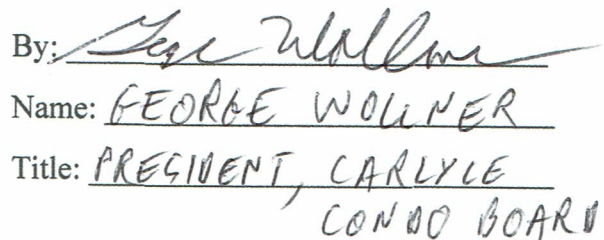 By: George Wollner
Name: GEORGE WOLLNER
Title: PRESIDENT, CARLYLE
CONDO BOARD